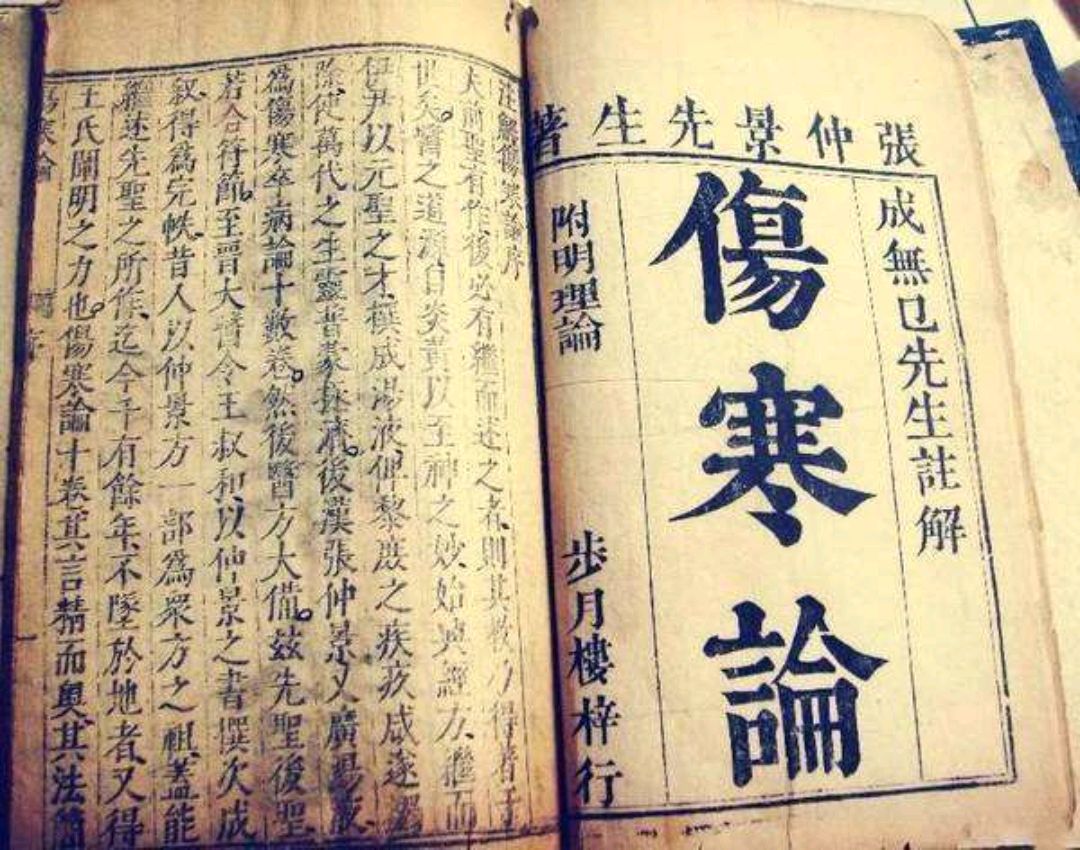 張仲景先生著
成無已先生註解
傷寒論
附明理論
步月樓梓行
註解傷寒論序
夫前聖有作後必有繼而述之者、則其教乃得著于
世矣。醫之道源自炎黃以至神之妙始興經方、繼而
伊尹以元聖之才、撰成湯液俾黎庶之疾疢咸遂蠲
除、使萬代之生靈普蒙拯濟。後漢張仲景又廣湯液
爲傷寒卒病論十數卷。然後醫方大備。茲先聖後聖
若合符節。至晉大醫令王叔和以仲景之書撰次成
叙、得爲完帙、昔人以仲景方一部爲衆方之祖、蓋能
繼述先聖之所作、迄今千有餘年、不墜於地者、又得
王氏闡明之力也。傷寒論十卷、其言精而奧、其法簡
傷寒論